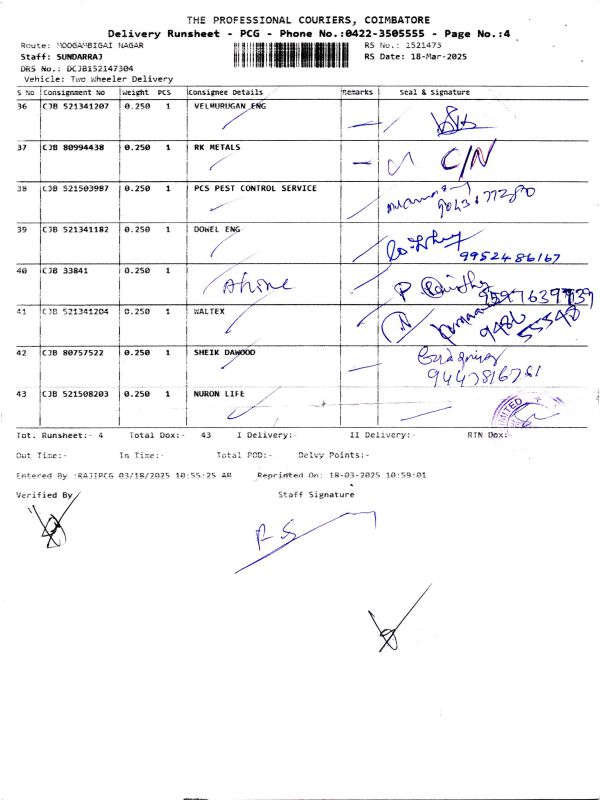 THE PROFESSIONAL COURIERS, COIMBATORE
Delivery Runsheet - PCG - Phone No.:0422-3505555 - Page No.:4
Route: MOOGAMBIGAI NAGAR RS No.: 1521473
Staff: SUNDARRAJ RS Date: 18-Mar-2025
DRS No.: DCJB152147304
Vehicle: Two Wheeler Delivery
S No Consignment No Weight PCS Consignee Details Remarks Seal & Signature
36 CJB 521341207 0.250 1 VELMURUGAN ENG
37 CJB 80994438 0.250 1 RK METALS C/N
38 CJB 521503987 0.250 1 PCS PEST CONTROL SERVICE
39 CJB 521341182 0.250 1 DOWEL ENG
9952486167
40 CJB 33841 0.250 1
41 CJB 521341204 0.250 1 WALTEX N
42 CJB 80757522 0.250 1 SHEIK DAWOOD
43 CJB 521508203 0.250 1 NURON LIFE
Tot. Runsheet:- 4 Total Dox:- 43 I Delivery:- II Delivery:- RTN Dox:-
Out Time:- In Time:- Total POD:- Delvy Points:-
Entered By :RAJIPCG 03/18/2025 10:55:25 AM Reprinted On: 18-03-2025 10:59:01
Verified By Staff Signature